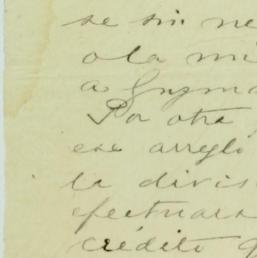 se sin ne
o la mi
a Guzma
Por otra
ese arreglo
la divis
efectuara
crédito q